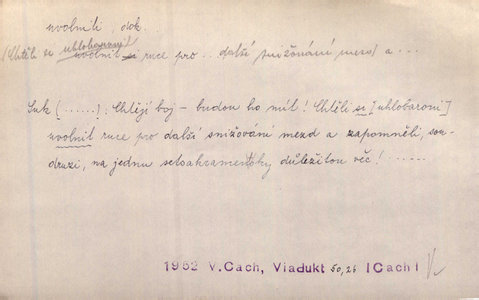 uvolnili, dok.
(Chtěli se uhlobaroni)
uvolnit si ruce pro .. další snižování mezd) a ...
Suk (......): Chtějí boj – budou ho mít! Chtěli si [uhlobaroni]
uvolnit ruce pro další snižování mezd a zapomněli, sou-
druzi, na jednu setsakramentsky důležitou věc! ......
1952 V.Cach, Viadukt 50,26 |Cach|